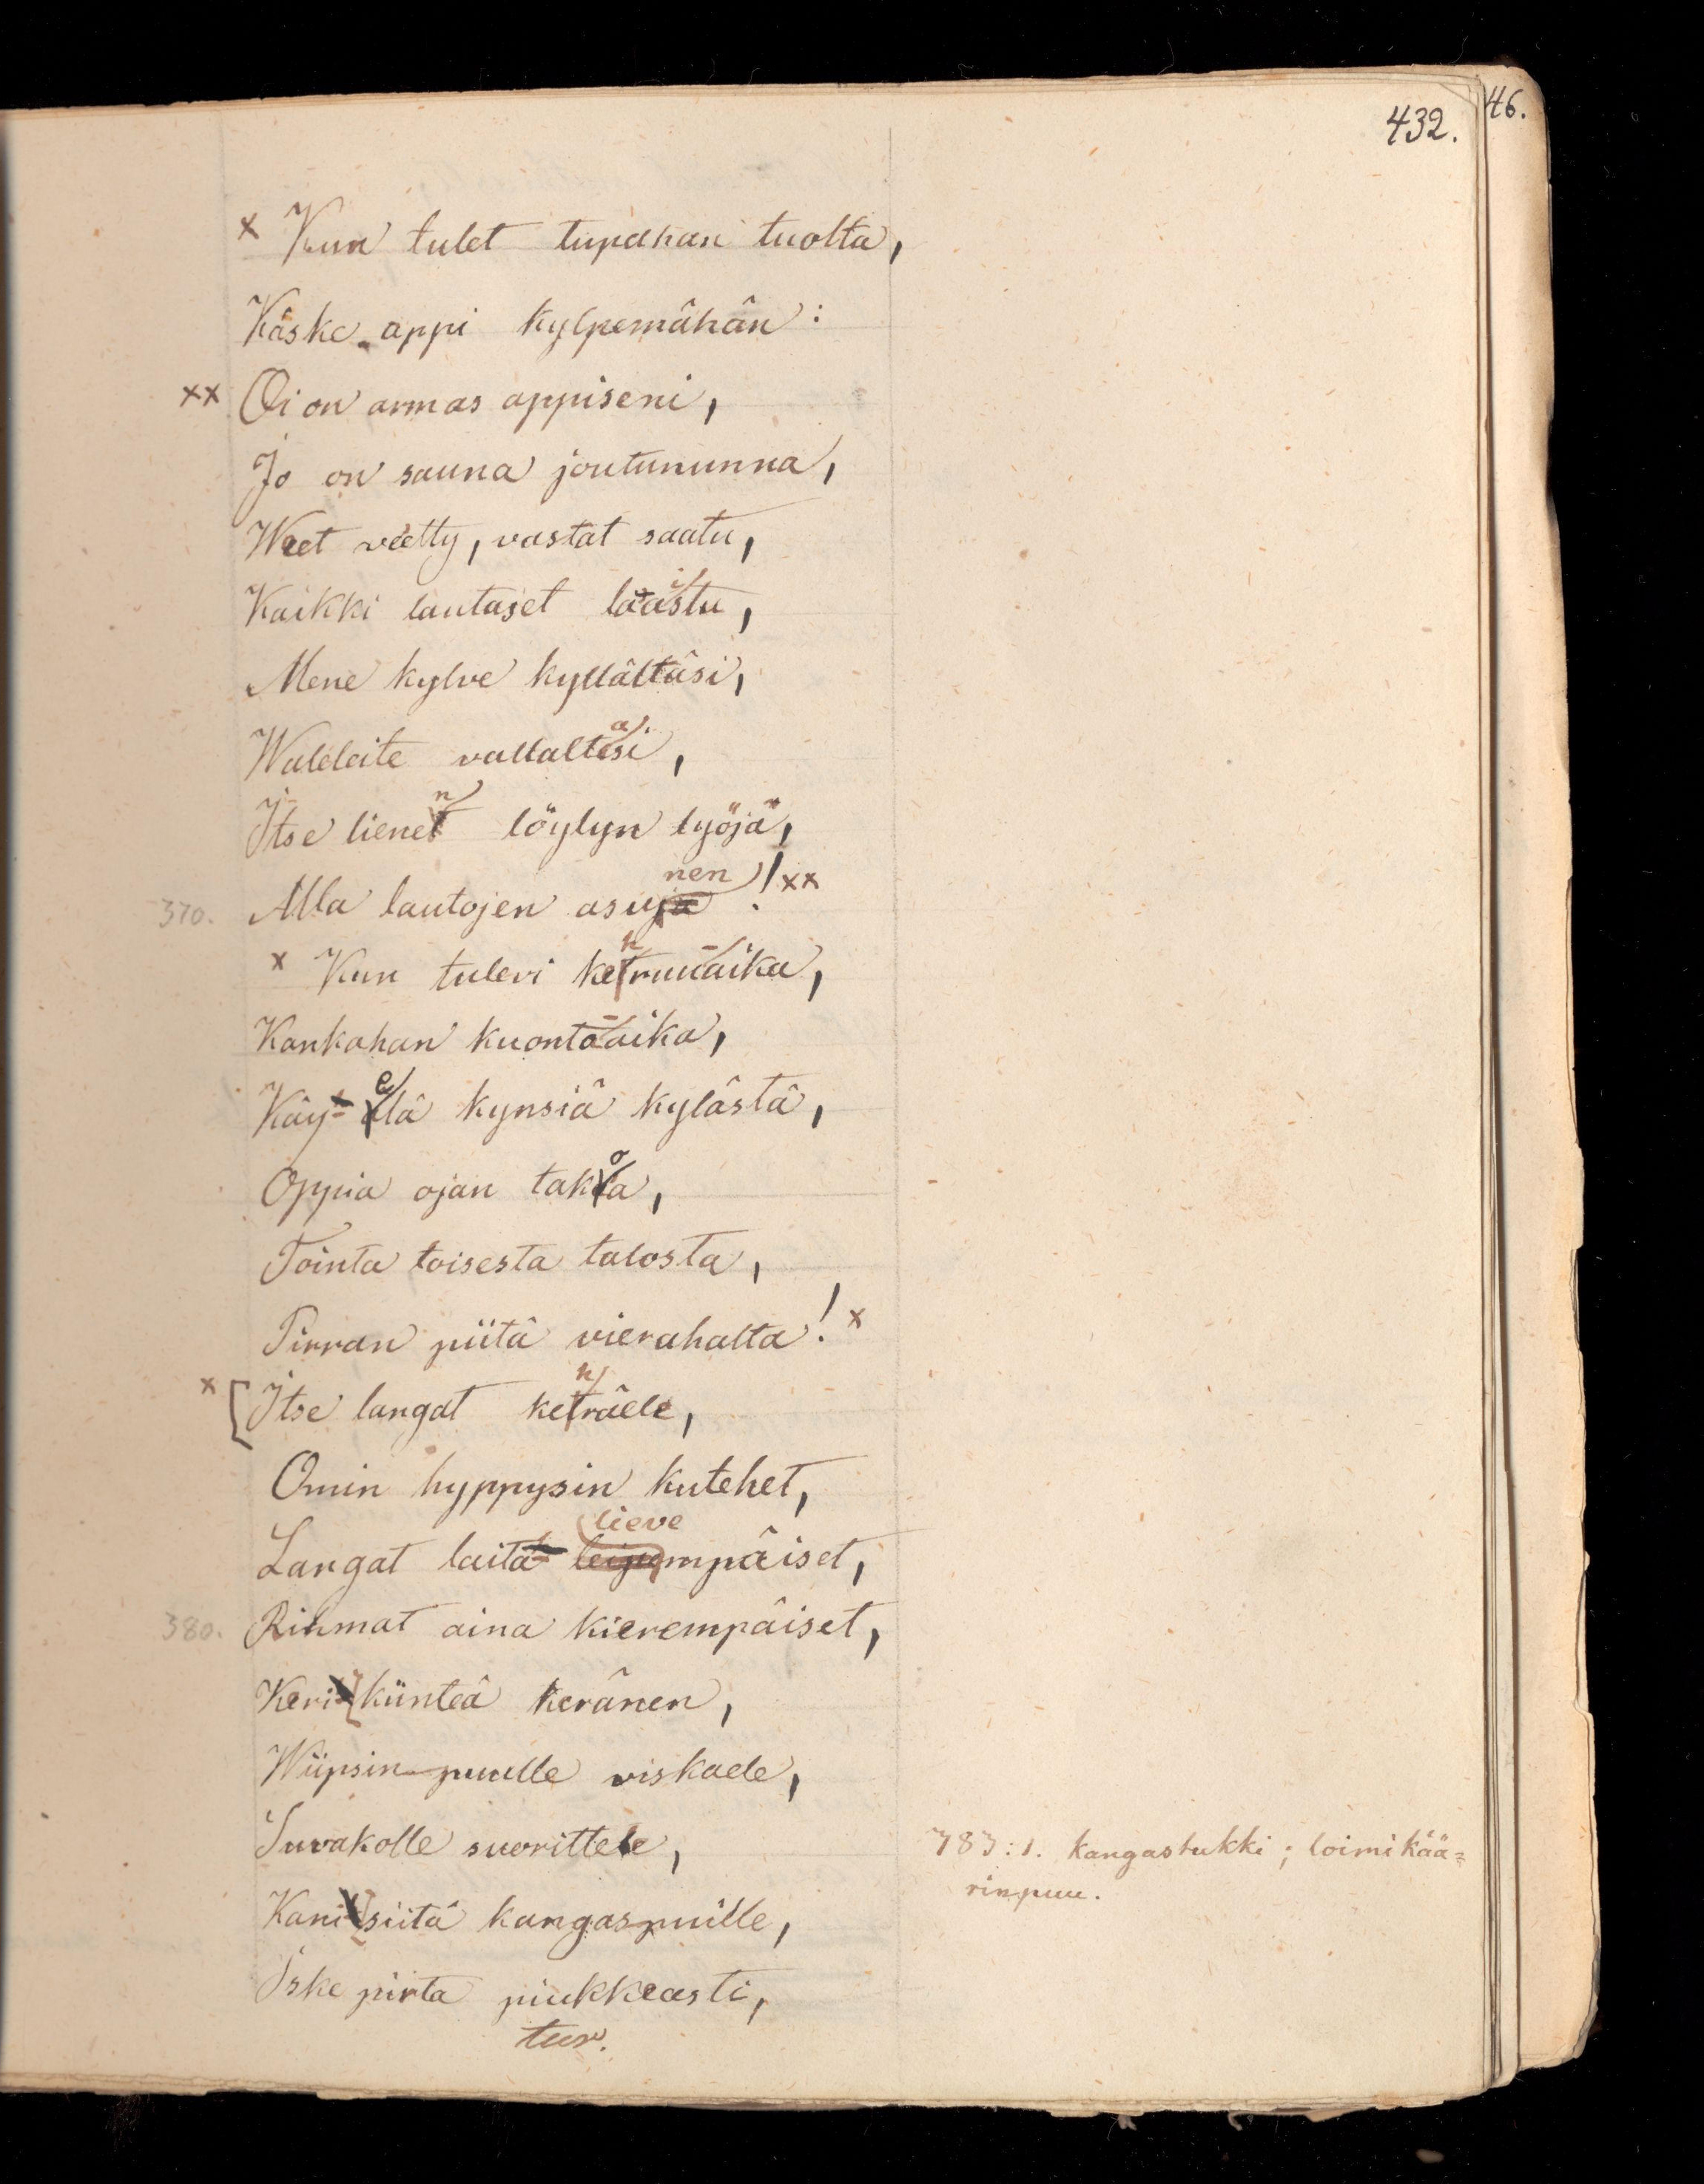 432.
46.
x Kun tulet tupahan tuolta,
Käske appi kylpemähän:
xx Oi on armas appiseni,
Jo on sauna joutununna,
Weet veetty, vastat saatu,
Kaikki lautaset laistu,
Mene kylve kyllältäsi,
Waleleite vallaltasi,
Itse lienen löylyn lyöjä,
370. Alla lautojen asujanen! xx
x Kun tulevi kehruu-aika,
Kankahan kuonta-aika,
Käy-elä kynsiä kylästä,
Oppia ojan takoa,
Tointa toisesta talosta,
Pirran piitä vierahalta! x
x [Itse langat kehräele,
Omin hyppysin kutehet,
lieve
Langat laita- leipempäiset,
380. Rihmat aina kierempäiset,
Keri kiinteä keränen,
Wiipsin-puulle viskaele,
Suvakolle suorittele,
383:1. kangastukki; loimikää=
rinpuu.
Kani siitä kangaspuille,
Iske pirta piukkeasti,
tur.